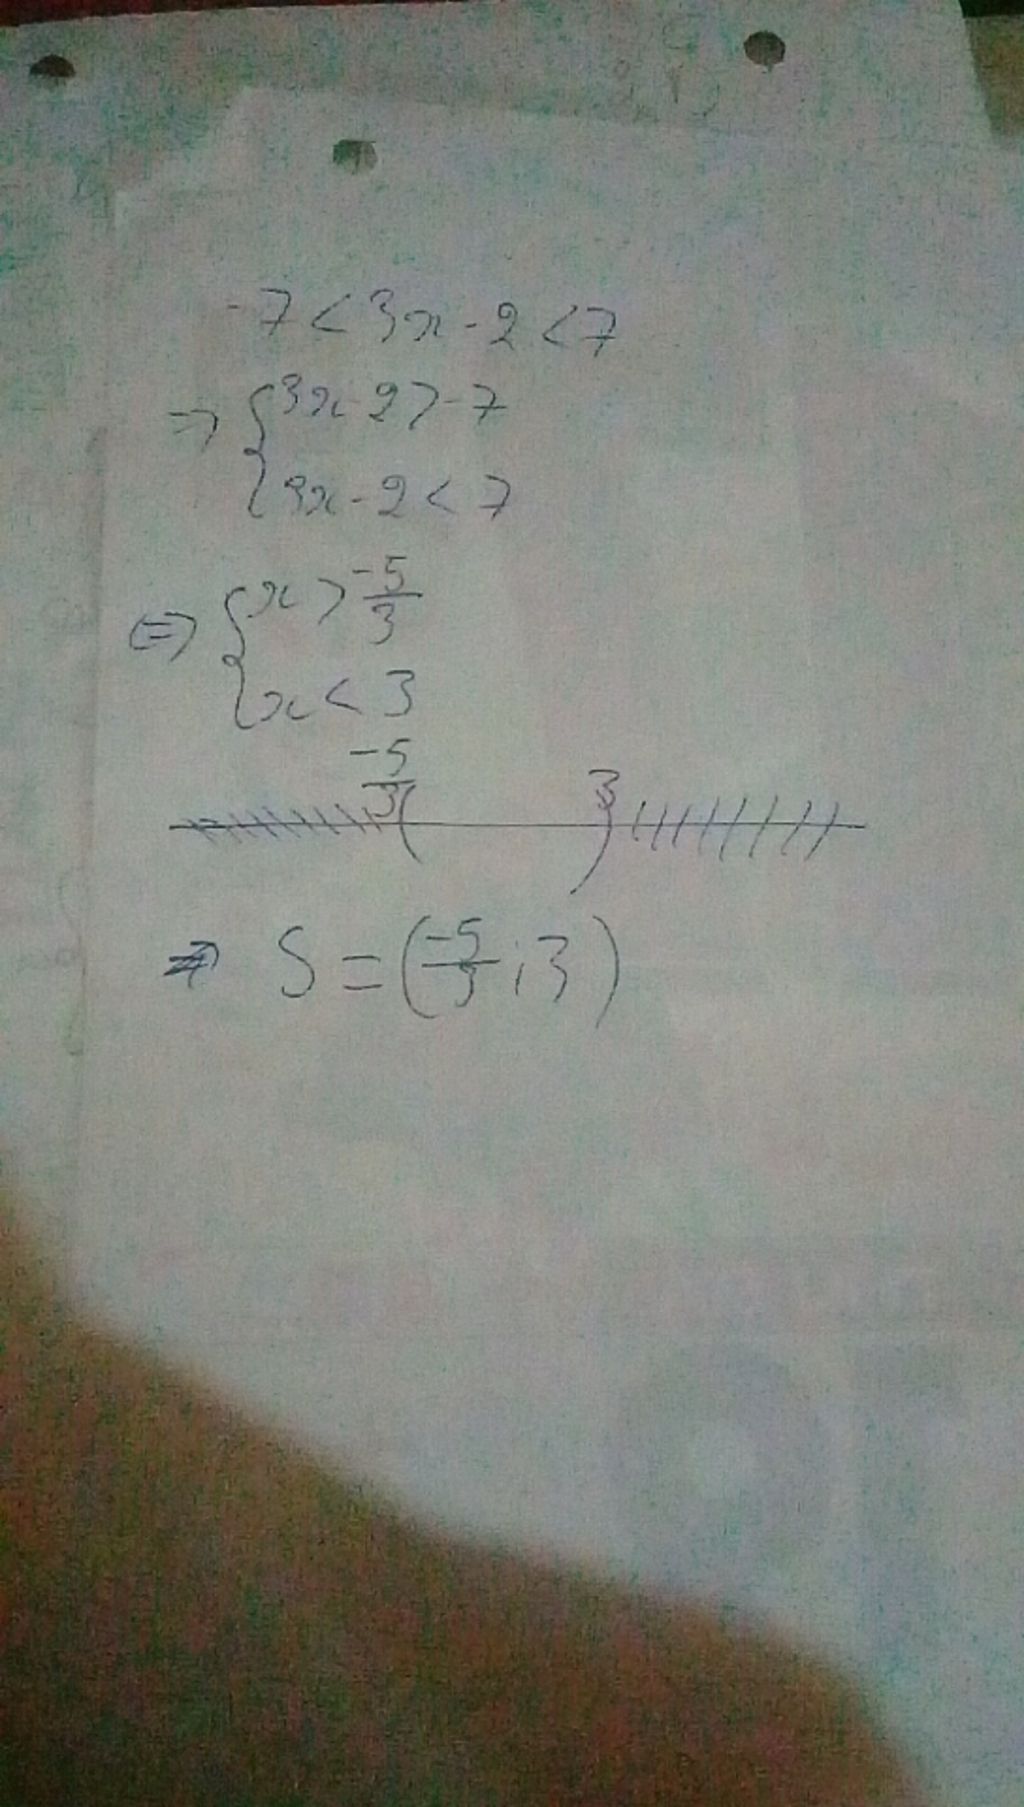 -7 < 3x - 2 < 7
=> { 3x - 2 > -7
3x - 2 < 7
<=> { x > -5/3
x < 3
-5/3 3
=> S = (-5/3 ; 3)